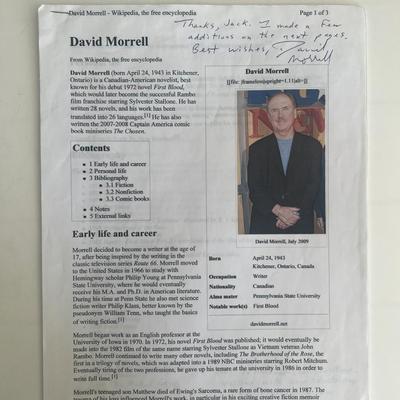 David Morrell - Wikipedia, the free encyclopedia
Page 1 of 3
Thanks, Jack. I made a few
additions on the next pages.
Best wishes, David
Morrell
David Morrell
From Wikipedia, the free encyclopedia
David Morrell (born April 24, 1943 in Kitchener,
Ontario) is a Canadian-American novelist, best
known for his debut 1972 novel First Blood,
which would later become the successful Rambo
film franchise starring Sylvester Stallone. He has
written 28 novels, and his work has been
translated into 26 languages.[1] He has also
written the 2007-2008 Captain America comic
book miniseries The Chosen.
Contents
1 Early life and career
2 Personal life
3 Bibliography
3.1 Fiction
3.2 Nonfiction
3.3 Comic books
4 Notes
5 External links
David Morrell
[[file: |frameless|upright=1.11|alt=]]
David Morrell, July 2009
Born April 24, 1943
Kitchener, Ontario, Canada
Occupation Writer
Nationality Canadian
Alma mater Pennsylvania State University
Notable work(s) First Blood
davidmorrell.net
Early life and career
Morrell decided to become a writer at the age of
17, after being inspired by the writing in the
classic television series Route 66. Morrell moved
to the United States in 1966 to study with
Hemingway scholar Philip Young at Pennsylvania
State University, where he would eventually
receive his M.A. and Ph.D. in American literature.
During his time at Penn State he also met science
fiction writer Philip Klass, better known by the
pseudonym William Tenn, who taught the basics
of writing fiction.[1]
Morrell began work as an English professor at the
University of Iowa in 1970. In 1972, his novel First Blood was published; it would eventually be
made into the 1982 film of the same name starring Sylvester Stallone as Vietnam veteran John
Rambo. Morrell continued to write many other novels, including The Brotherhood of the Rose, the
first in a trilogy of novels, which was adapted into a 1989 NBC miniseries starring Robert Mitchum.
Eventually tiring of the two professions, he gave up his tenure at the university in 1986 in order to
write full time.[1]
Morrell's teenaged son Matthew died of Ewing's Sarcoma, a rare form of bone cancer in 1987. The
trauma of his loss influenced Morrell's work, in particular in his creative fiction memoir